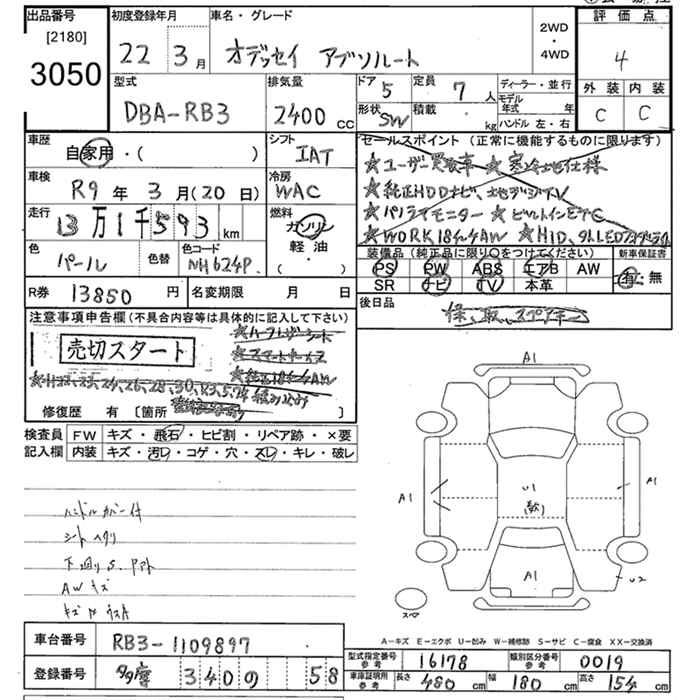 出品番号 初度登録年月 車名・グレード 評価点
[2180] 2WD
3050 22 3月 オデッセイ アブソルート ・ 4
4WD
外装 内装
C C
型式 排気量 ドア 定員 ディーラー・並行
DBA-RB3 2400cc 5 7人 モデル年式 年
形状 積載 ハンドル 左・右
SW kg
車歴 シフト セールスポイント (正常に機能するものに限ります)
自家用・( ) IAT ★ユーザー買取車 ★寒冷地仕様
車検 冷房 ★純正HDDナビ、地デジTV
R9年 3月(20日) WAC
走行 燃料 ★バックモニター ★ビルトインETC
13万1千593km ガソリン ★WORK 18インチAW ★HID、
軽油
・( )
色 色替 色コード 装備品 (純正品に限り〇をつけてください) 新車保証書
パール NH624P. PS PW ABS エアB AW 有・無
SR ナビ TV 本革
R券 13850円 名変期限 月 日 後日品
保、取、スペアキー
注意事項申告欄(不具合内容等は具体的に記入して下さい)
★ハーフレザーシート
売切スタート ★スマートキー
★純正18インチAW
★H22、23、24、26、28、30、R3、5、7
修復歴 有 [箇所 ]
検査員 FW キズ・飛石・ヒビ割・リペア跡・×要
記入欄 内装 キズ・汚レ・コゲ・穴・スレ・キレ・破レ
A1
A1 U1 A1
ハンドルカバー付
シートヘタリ
下廻りS.
AWキズ
A1 U2
スペア
A－キズ E－エクボ U－凹み W－補修跡 S－サビ C－腐食 XX－交換済
車台番号 RB3-1109897
型式指定番号 参考 16178 類別区分番号 参考 0019
登録番号 多摩 340 の 58
車庫証明用 参考 長さ 480cm 幅 180cm 高さ 154cm